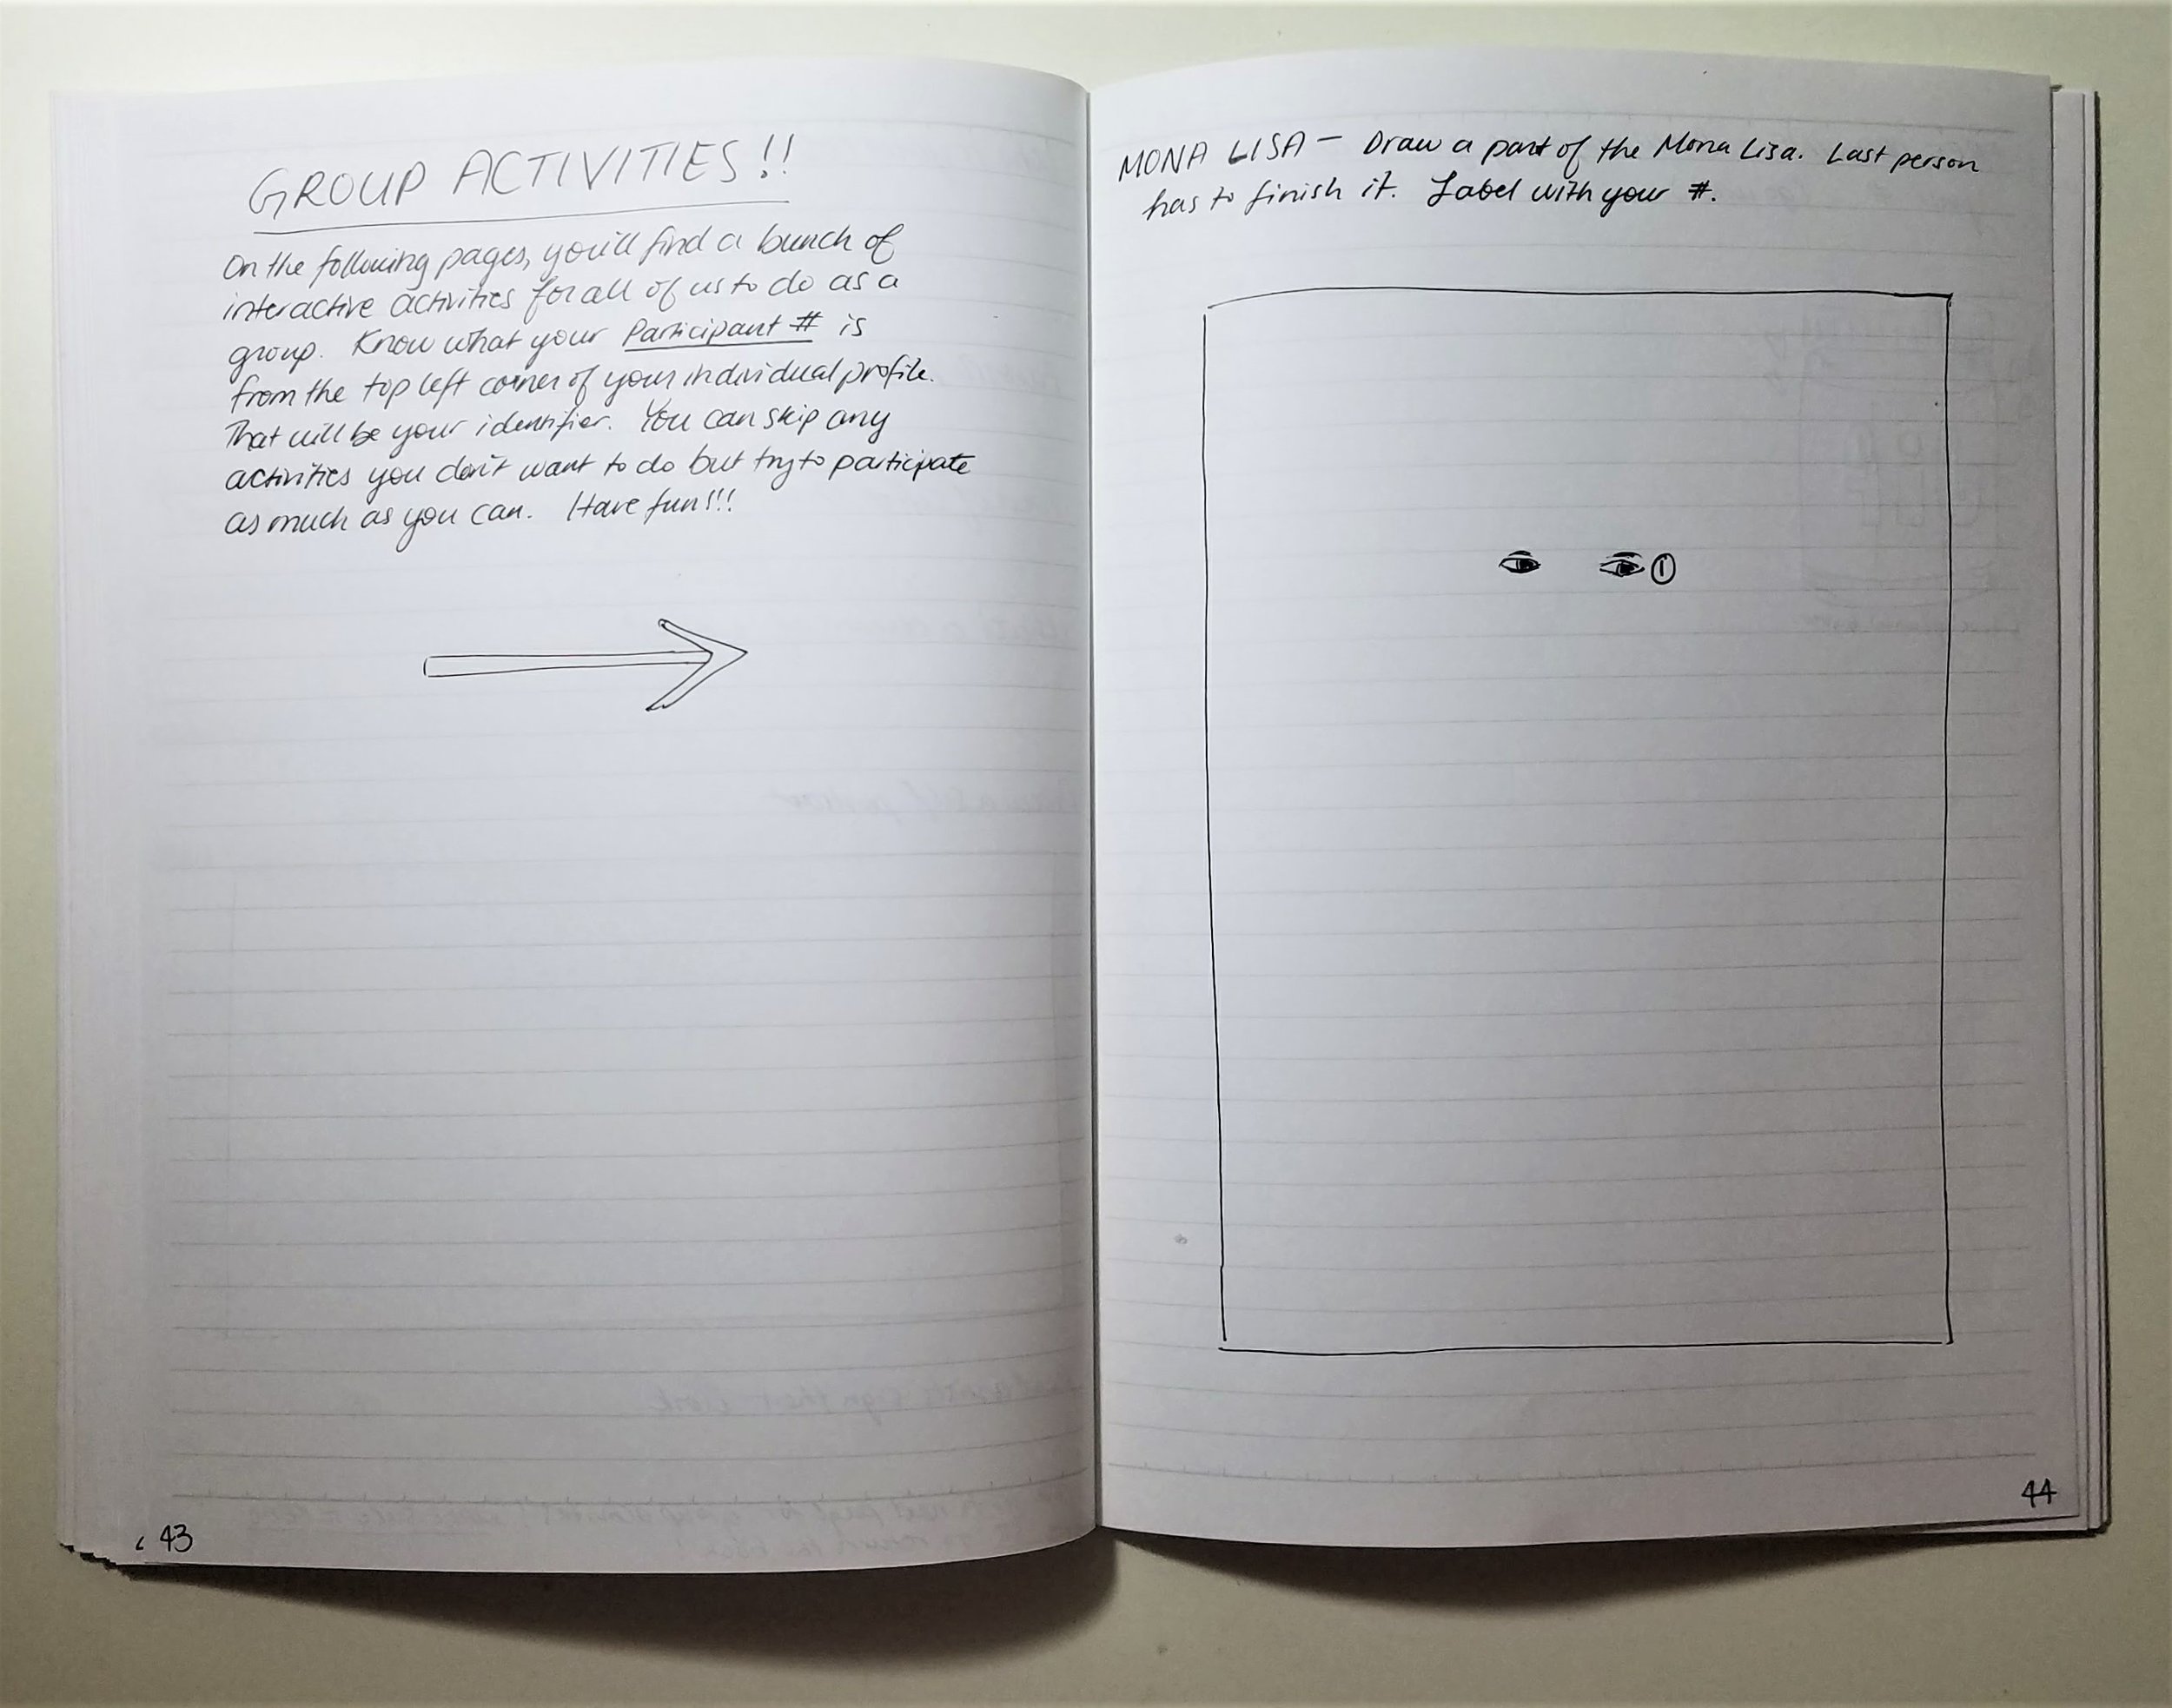 GROUP ACTIVITIES!!
On the following pages, you'll find a bunch of
interactive activities for all of us to do as a
group. Know what your Participant # is
from the top left corner of your individual profile.
That will be your identifier. You can skip any
activities you don't want to do but try to participate
as much as you can. Have fun!!!
43
MONA LISA - Draw a part of the Mona Lisa. Last person
has to finish it. Label with your #.
1
44